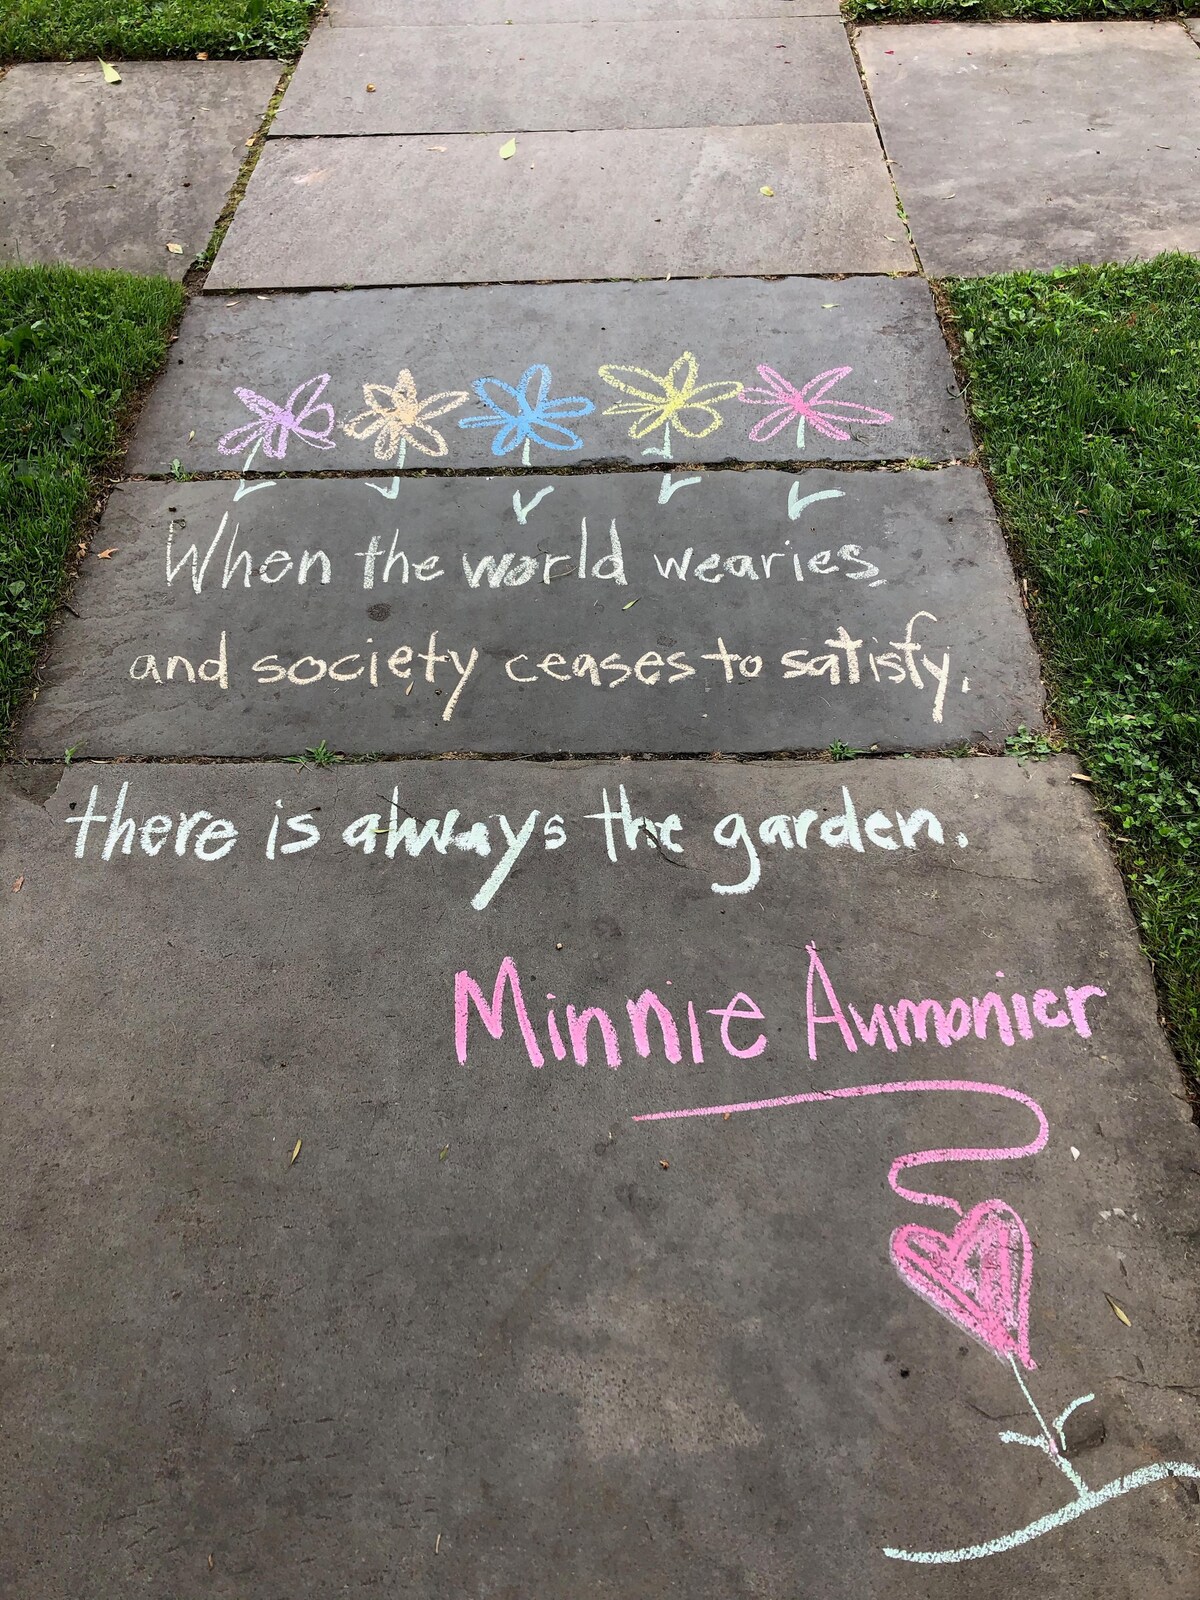 When the world wearies
and society ceases to satisfy,
there is always the garden.
Minnie Aumonier